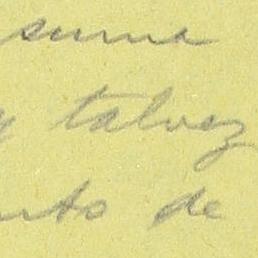 suma
y talvez
nto de